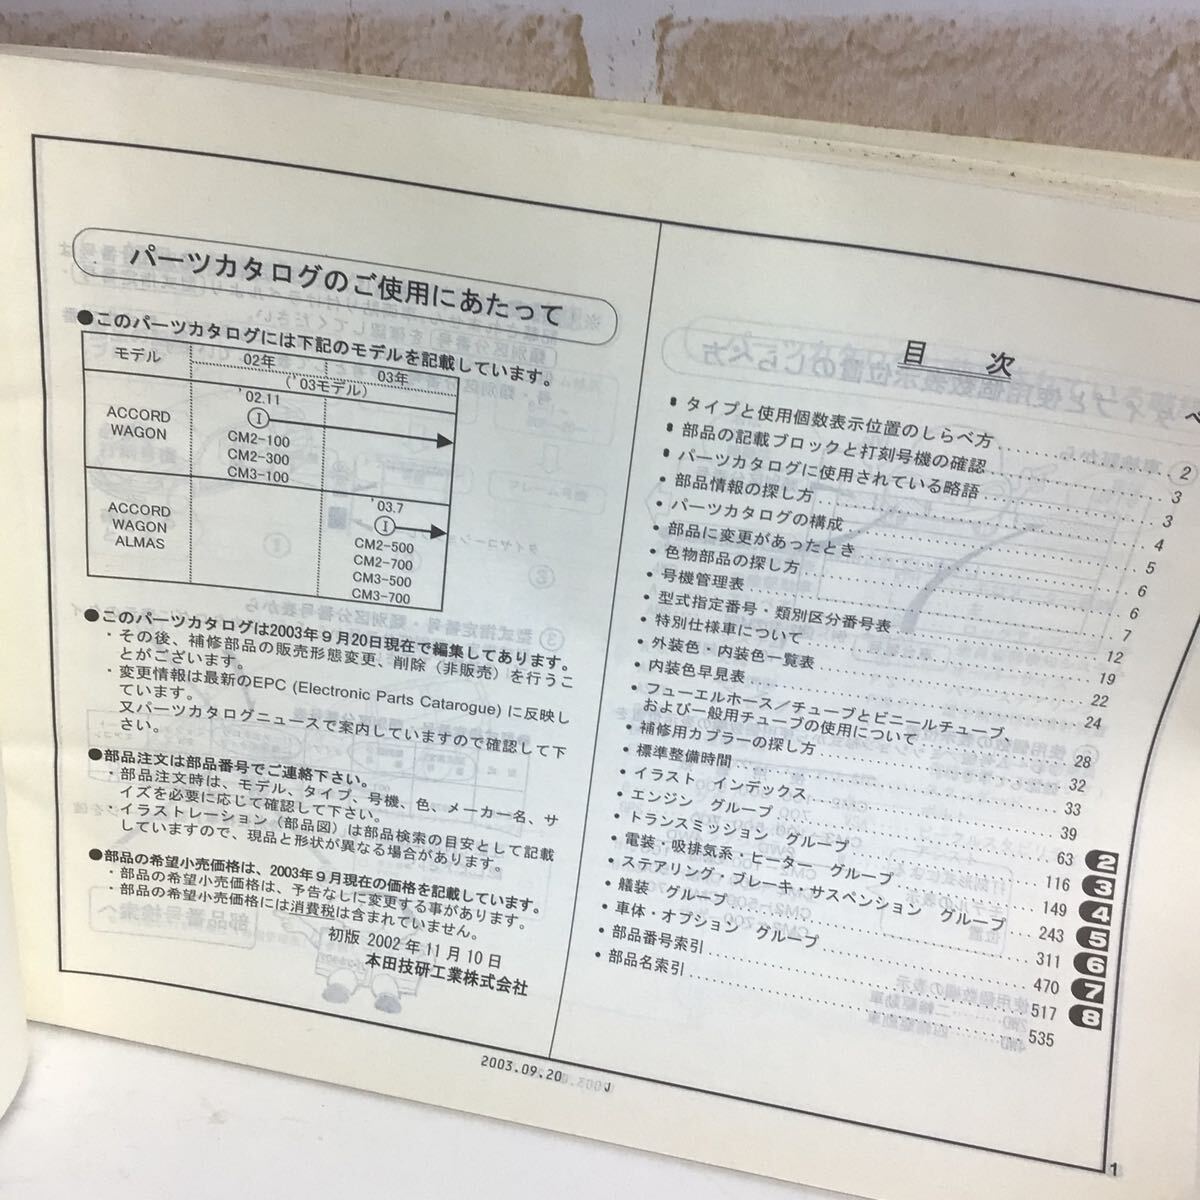 パーツカタログのご使用にあたって
●このパーツカタログには下記のモデルを記載しています。
モデル 02年 03年
('03モデル)
ACCORD
WAGON
'02.11
I
CM2-100
CM2-300
CM3-100
ACCORD
WAGON
ALMAS
'03.7
I
CM2-500
CM2-700
CM3-500
CM3-700
●このパーツカタログは2003年9月20日現在で編集してあります。
・その後、補修部品の販売形態変更、削除（非販売）を行うこ
とがございます。
・変更情報は最新のEPC (Electronic Parts Catarogue) に反映し
ています。
又パーツカタログニュースで案内していますので確認して下
さい。
●部品注文は部品番号でご連絡下さい。
・部品注文時は、モデル、タイプ、号機、色、メーカー名、サ
イズを必要に応じて確認して下さい。
・イラストレーション（部品図）は部品検索の目安として記載
していますので、現品と形状が異なる場合があります。
●部品の希望小売価格は、2003年9月現在の価格を記載しています。
・部品の希望小売価格は、予告なしに変更する事があります。
・部品の希望小売価格には消費税は含まれていません。
初版 2002年11月10日
本田技研工業株式会社
目 次
・タイプと使用個数表示位置のしらべ方 2
・部品の記載ブロックと打刻号機の確認 3
・パーツカタログに使用されている略語 3
・部品情報の探し方 4
・パーツカタログの構成 5
・部品に変更があったとき 6
・色物部品の探し方 6
・号機管理表 7
・型式指定番号・類別区分番号表 12
・特別仕様車について 19
・外装色・内装色一覧表 22
・内装色早見表 24
・フューエルホース／チューブとビニールチューブ、
および一般用チューブの使用について 28
・補修用カプラーの探し方 32
・標準整備時間 33
・イラスト インデックス 39
・エンジン グループ 63 2
・トランスミッション グループ 116 3
・電装・吸排気系・ヒーター グループ 149 4
・ステアリング・ブレーキ・サスペンション グループ 243 5
・艤装 グループ 311 6
・車体・オプション グループ 470 7
・部品番号索引 517 8
・部品名索引 535
2003.09.20 J
1